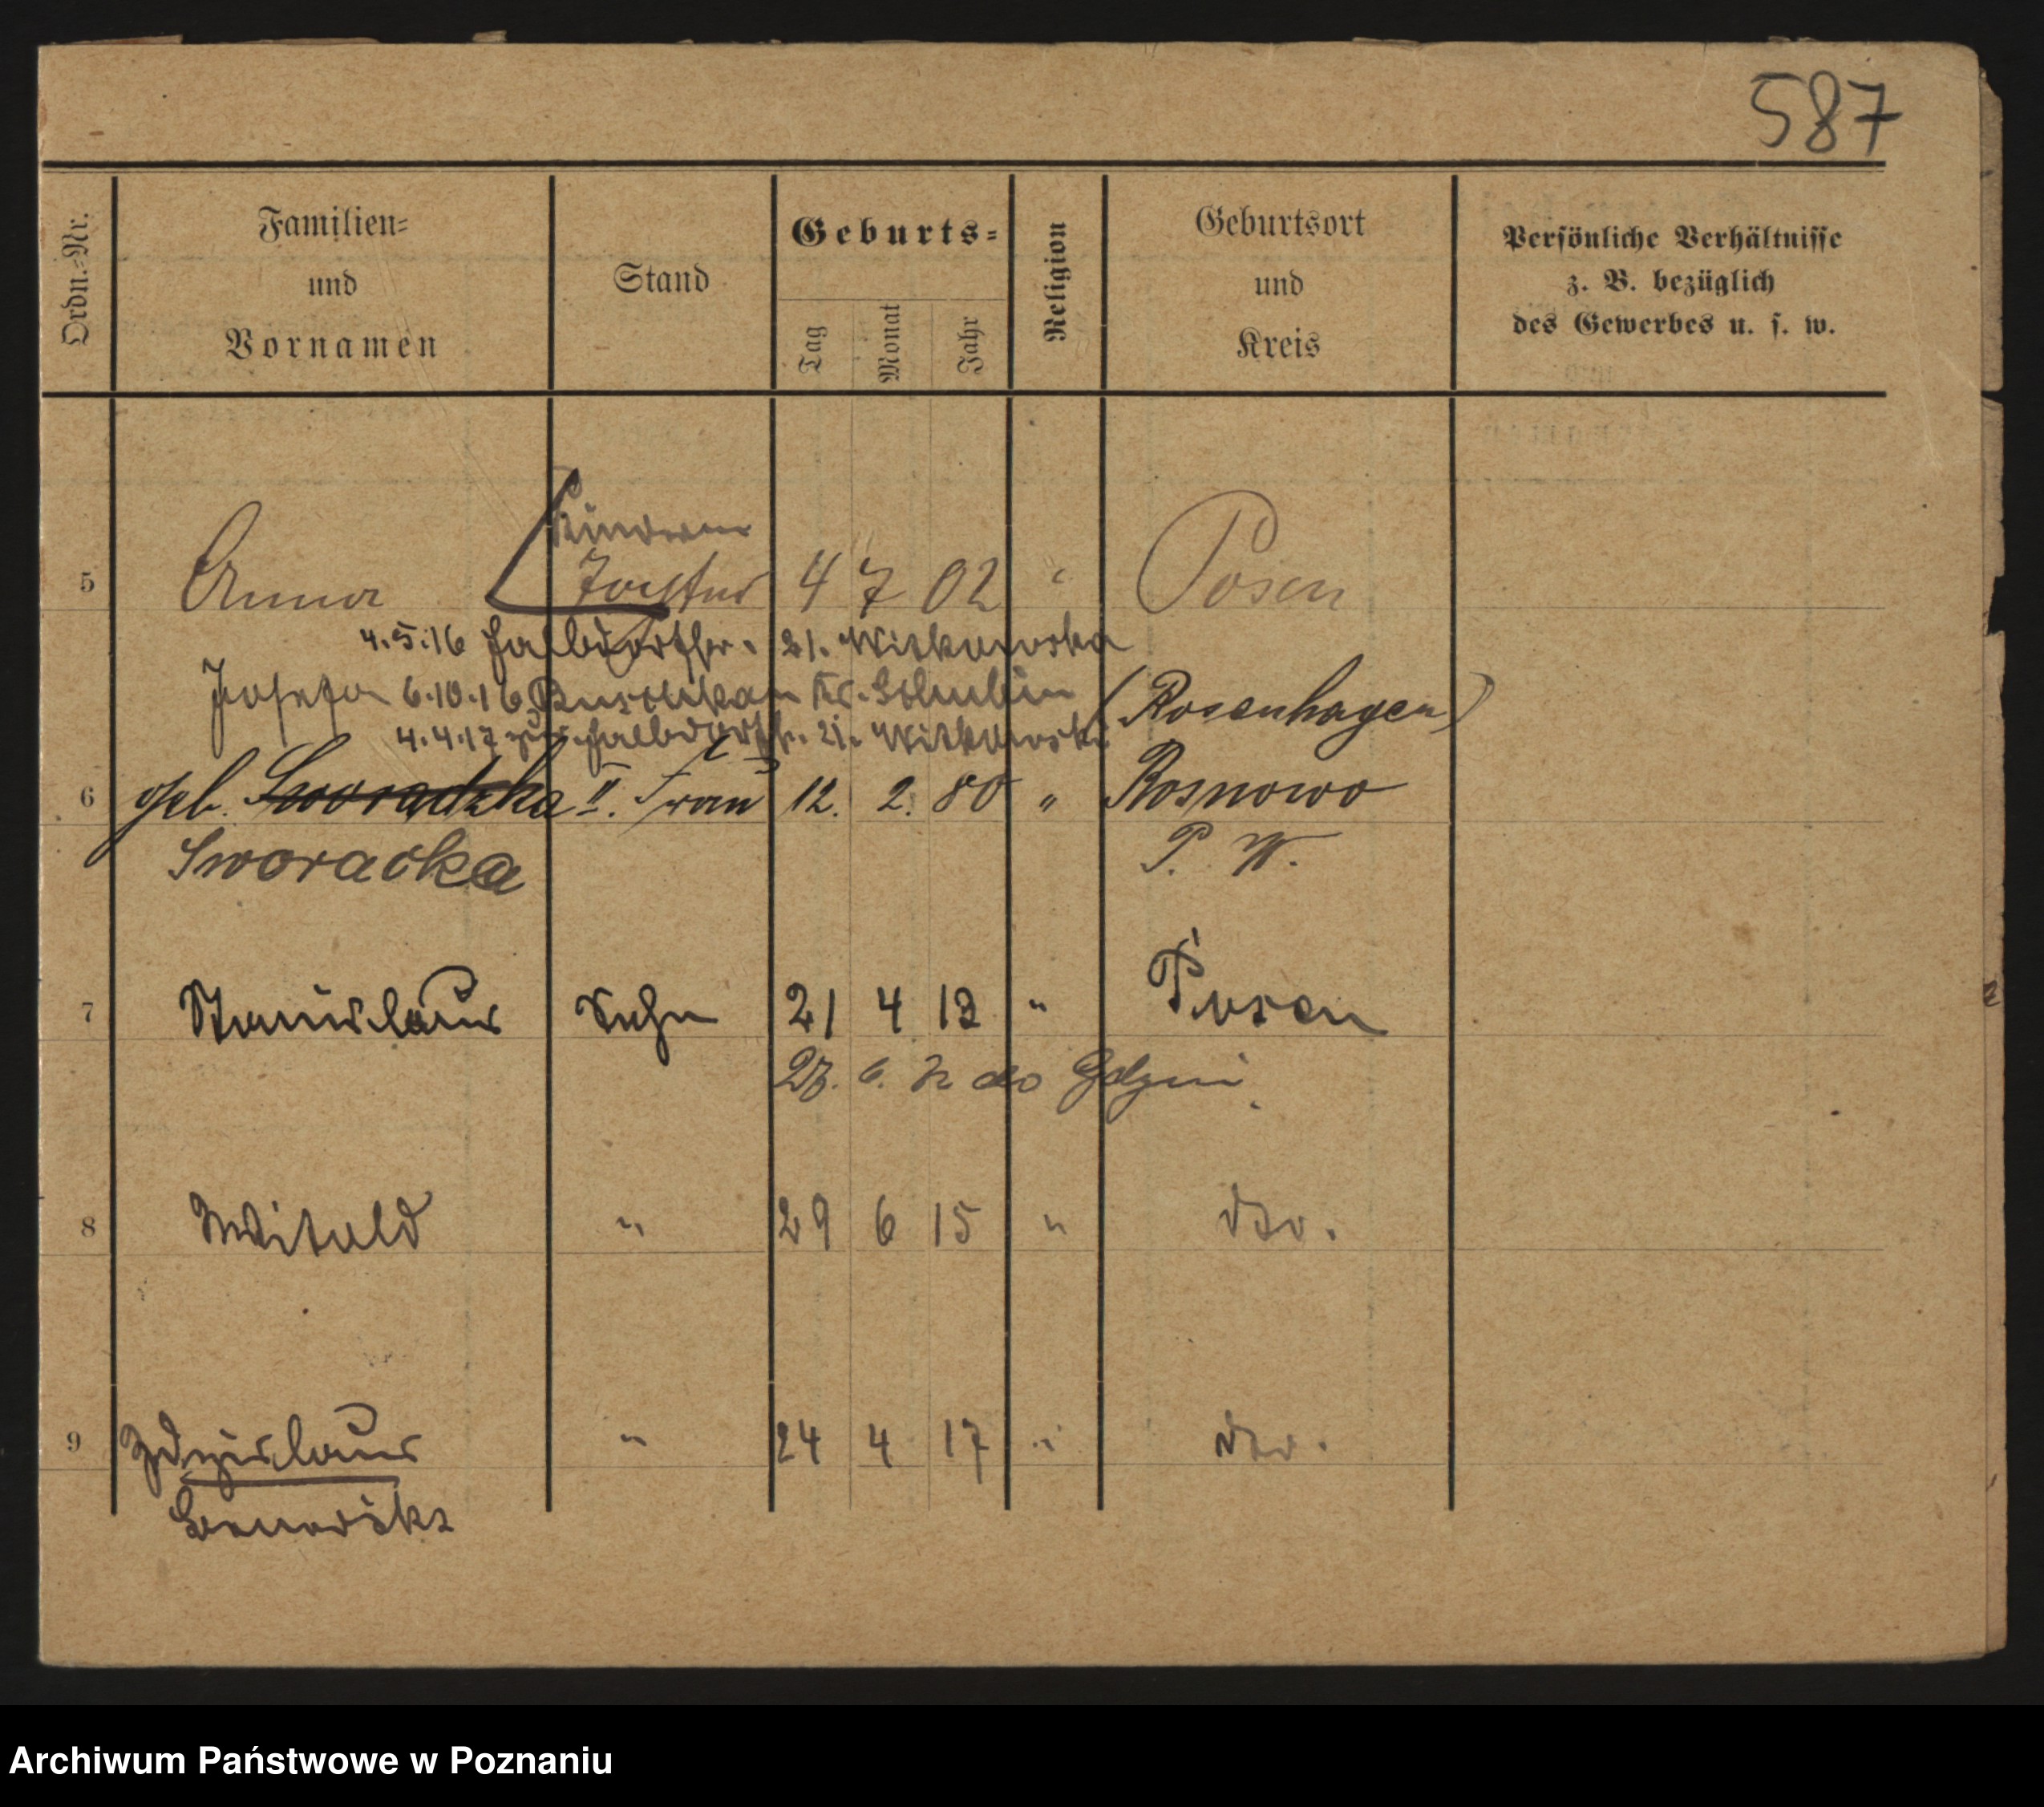 587
Ordn.-Nr.
Familien-
und
Vornamen
Stand
Geburts-
Tag
Monat
Jahr
Religion
Geburtsort
und
Kreis
Persönliche Verhältnisse
z. B. bezüglich
des Gewerbes u. s. w.
5 Anna Tochter 4 7 02 " Posen
4.5.16 21. Witkowska
Josefa 6.10.16 Kr. Schubin (Rosenhagen)
4.4.17 21. Witkowski
6 geb. Sworadzka II. Frau 12. 2. 80 " Rosnowo
Sworacka P. W.
7 Stanislaus Sohn 21 4 13 " Posen
6. do Gdyni
8 Witold " 29 6 15 " dto.
9 Zdzislaus " 24 4 17 " dto.
Archiwum Państwowe w Poznaniu